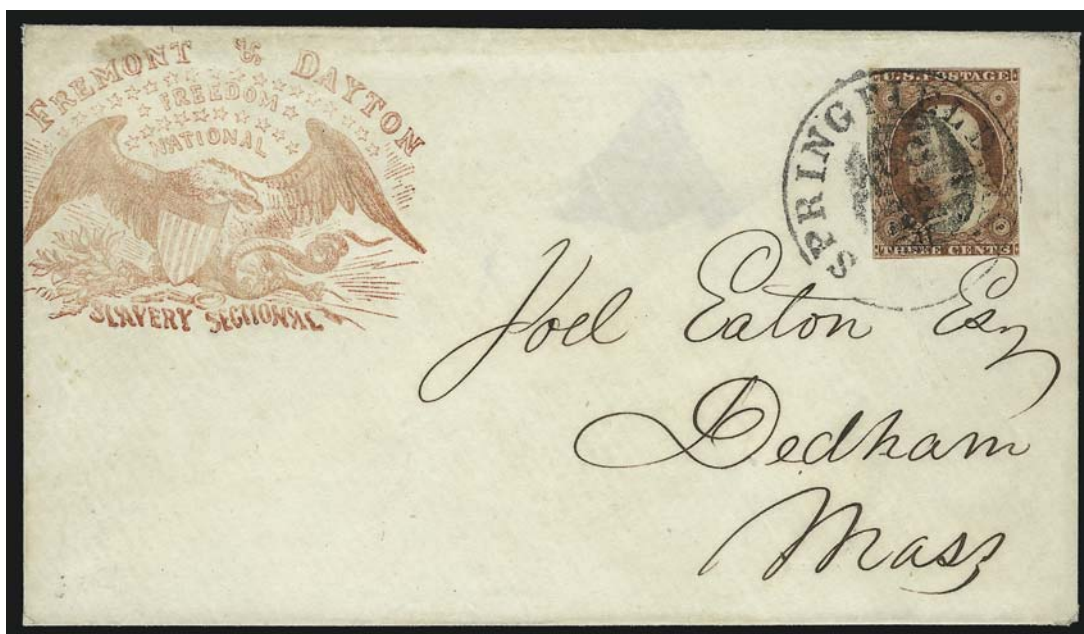 FREMONT & DAYTON
FREEDOM
NATIONAL
SLAVERY SECTIONAL
SPRINGFIELD
U.S. POSTAGE
THREE CENTS
Joel Eaton Esq
Dedham
Mass